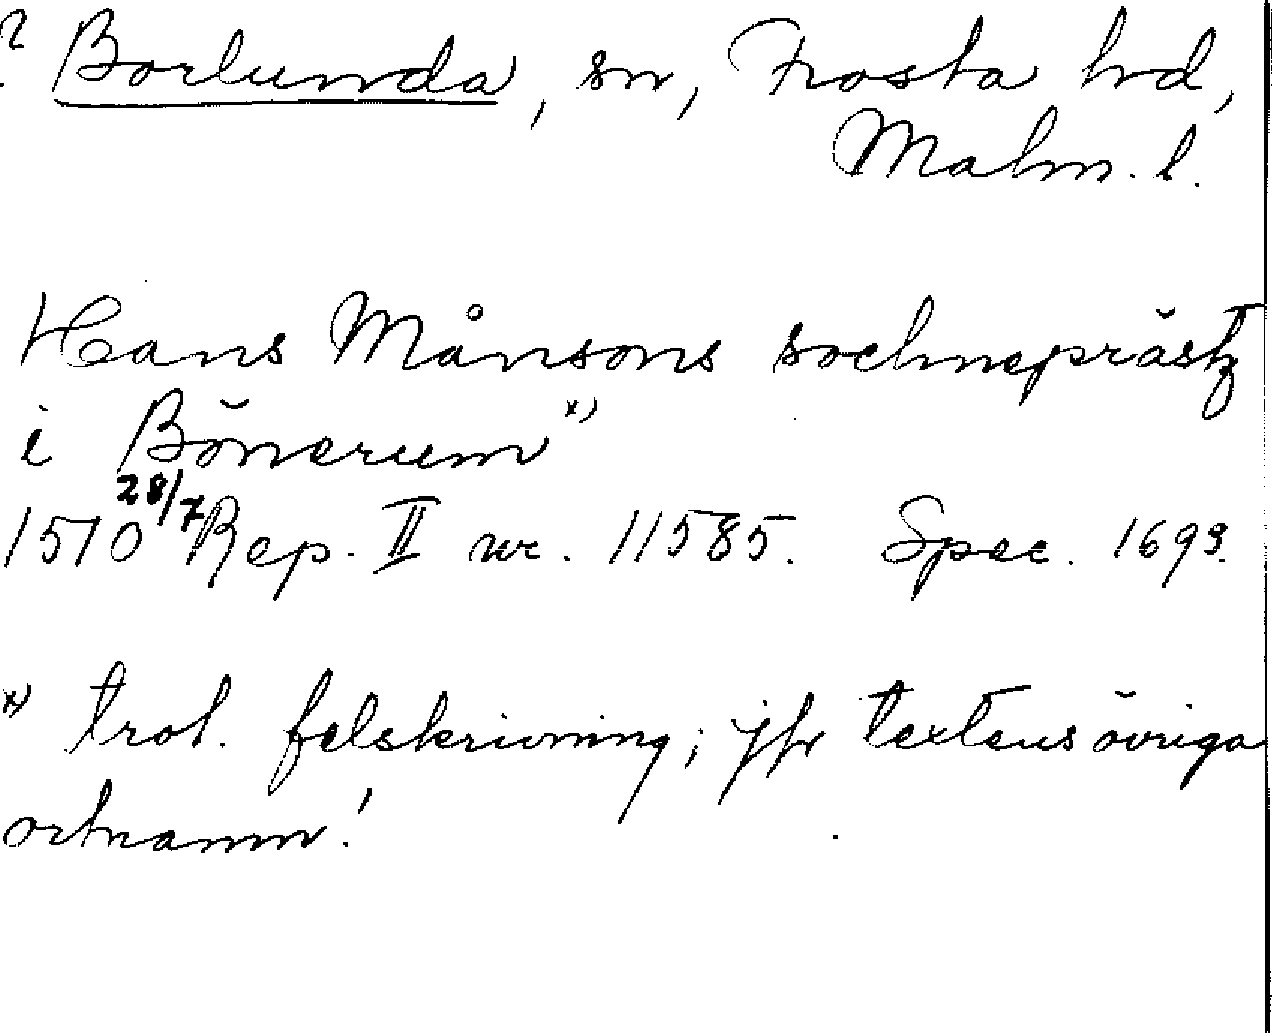 ? Borlunda, sn, Frosta hd,
Malm. l.
Hans Månsons sochnepräst
i Bönerum x)
1510 28/7 Rep. II nr. 11585. Spec. 1699.
x) trol. felskrivning; jfr textens övriga
ortnamn!